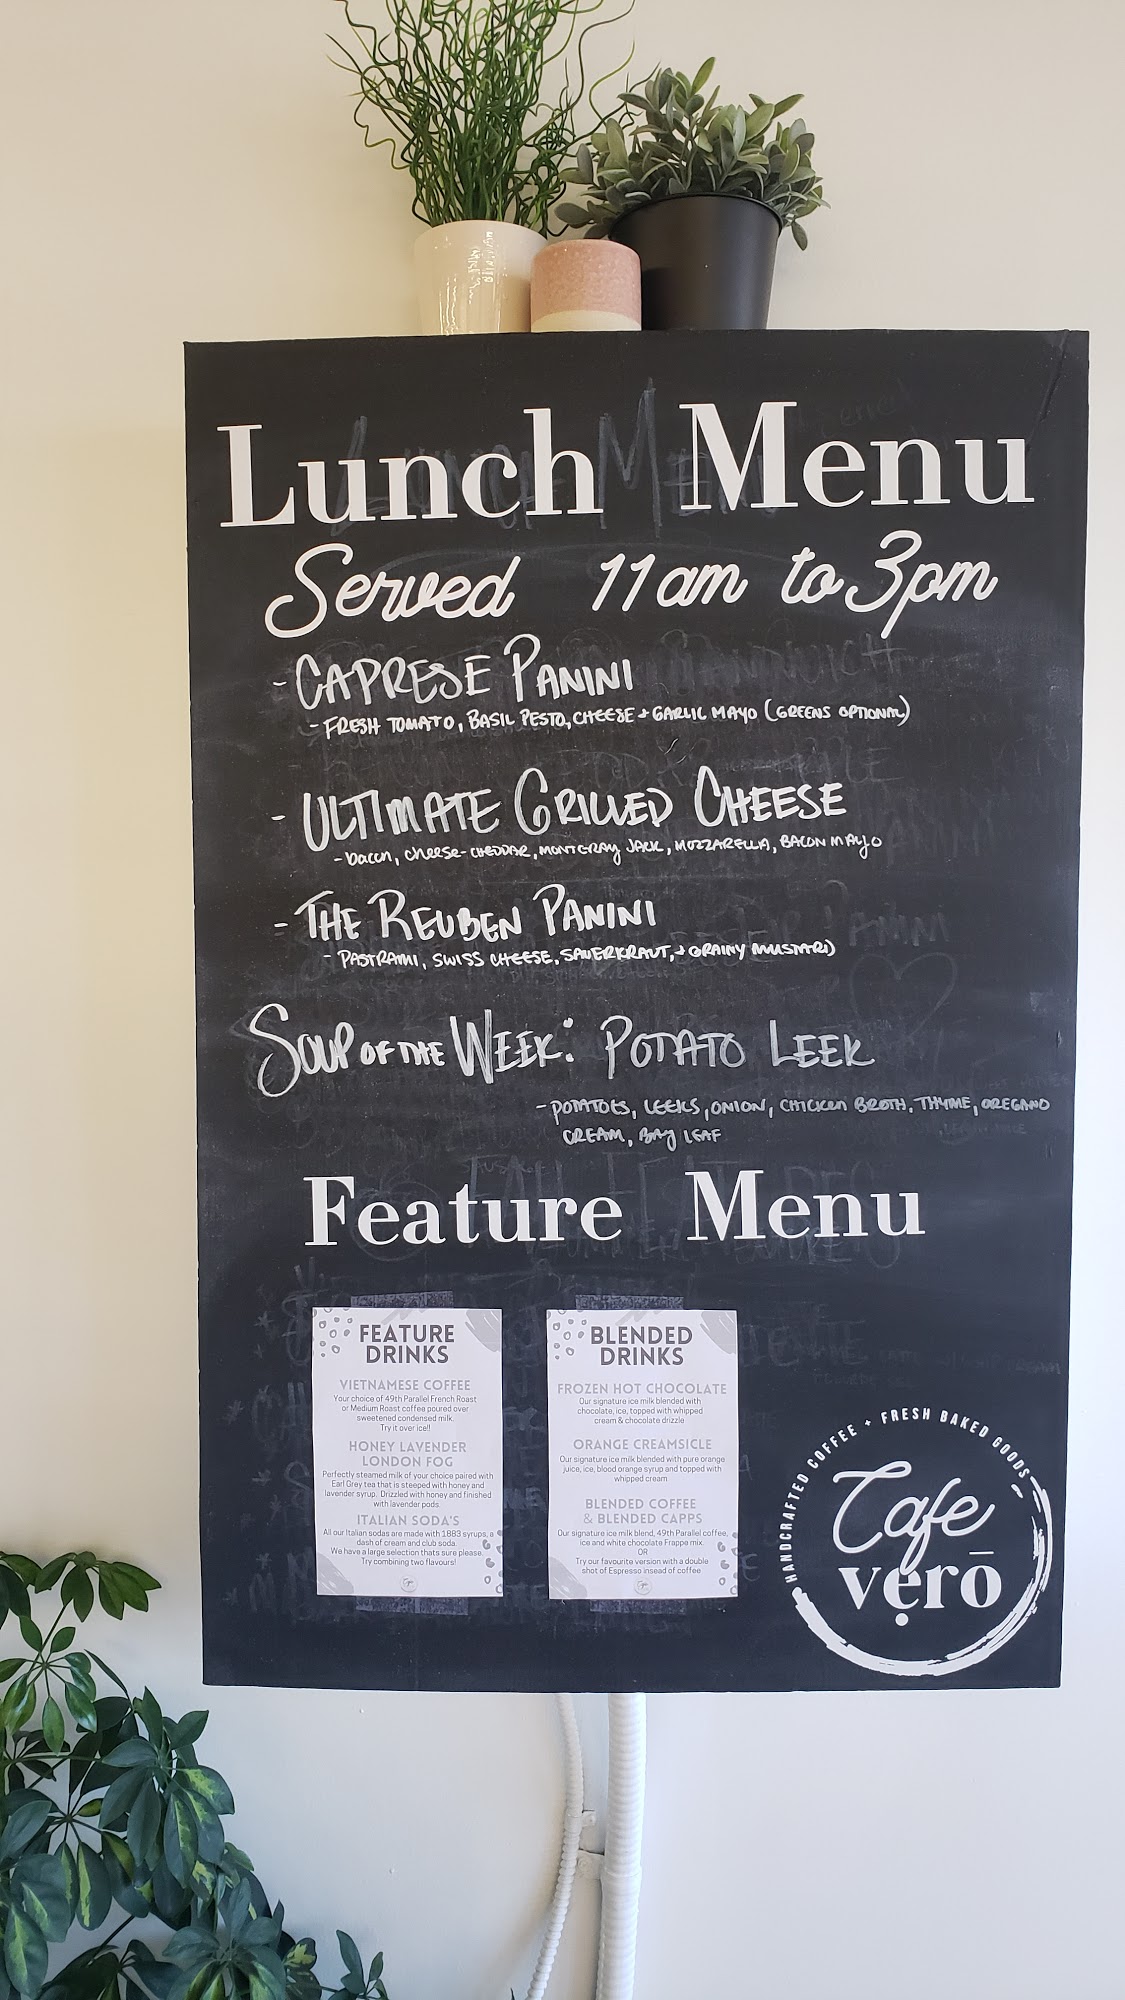 Lunch Menu
Served 11am to 3pm
- CAPRESE PANINI
- FRESH TOMATO, BASIL PESTO, CHEESE + GARLIC MAYO (GREENS OPTIONAL)
- ULTIMATE GRILLED CHEESE
- bacon, cheese - CHEDDAR, MONTERAY JACK, MOZZARELLA, BACON MAYO
- THE REUBEN PANINI
- PASTRAMI, SWISS CHEESE, SAUERKRAUT, + GRAINY MUSTARD
SOUP OF THE WEEK: POTATO LEEK
- POTATOES, LEEKS, ONION, CHICKEN BROTH, THYME, OREGANO
CREAM, BAY LEAF
Feature Menu
FEATURE
DRINKS
VIETNAMESE COFFEE
Your choice of 49th Parallel French Roast
or Medium Roast coffee poured over
sweetened condensed milk.
Try it over ice!!
HONEY LAVENDER
LONDON FOG
Perfectly steamed milk of your choice paired with
Earl Grey tea that is steeped with honey and
lavender syrup. Drizzled with honey and finished
with lavender pods.
ITALIAN SODA'S
All our Italian sodas are made with 1883 syrups, a
dash of cream and club soda.
We have a large selection thats sure please.
Try combining two flavours!
BLENDED
DRINKS
FROZEN HOT CHOCOLATE
Our signature ice milk blended with
chocolate, ice, topped with whipped
cream & chocolate drizzle
ORANGE CREAMSICLE
Our signature ice milk blended with pure orange
juice, ice, blood orange syrup and topped with
whipped cream
BLENDED COFFEE
& BLENDED CAPPS
Our signature ice milk blend, 49th Parallel coffee,
ice and white chocolate Frappe mix.
OR
Try our favourite version with a double
shot of Espresso insead of coffee
HANDCRAFTED COFFEE + FRESH BAKED GOODS
Cafe
vẹrō